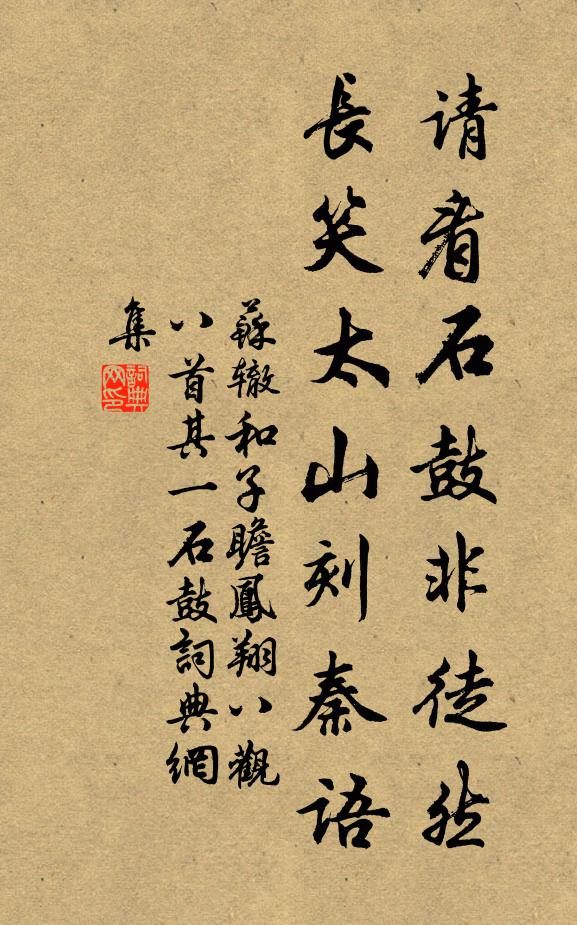 请看石鼓非徒然
長笑太山刻秦语
蘇辙和子瞻鳳翔八觀
八首其一石鼓詞典網
集
詞典
网印